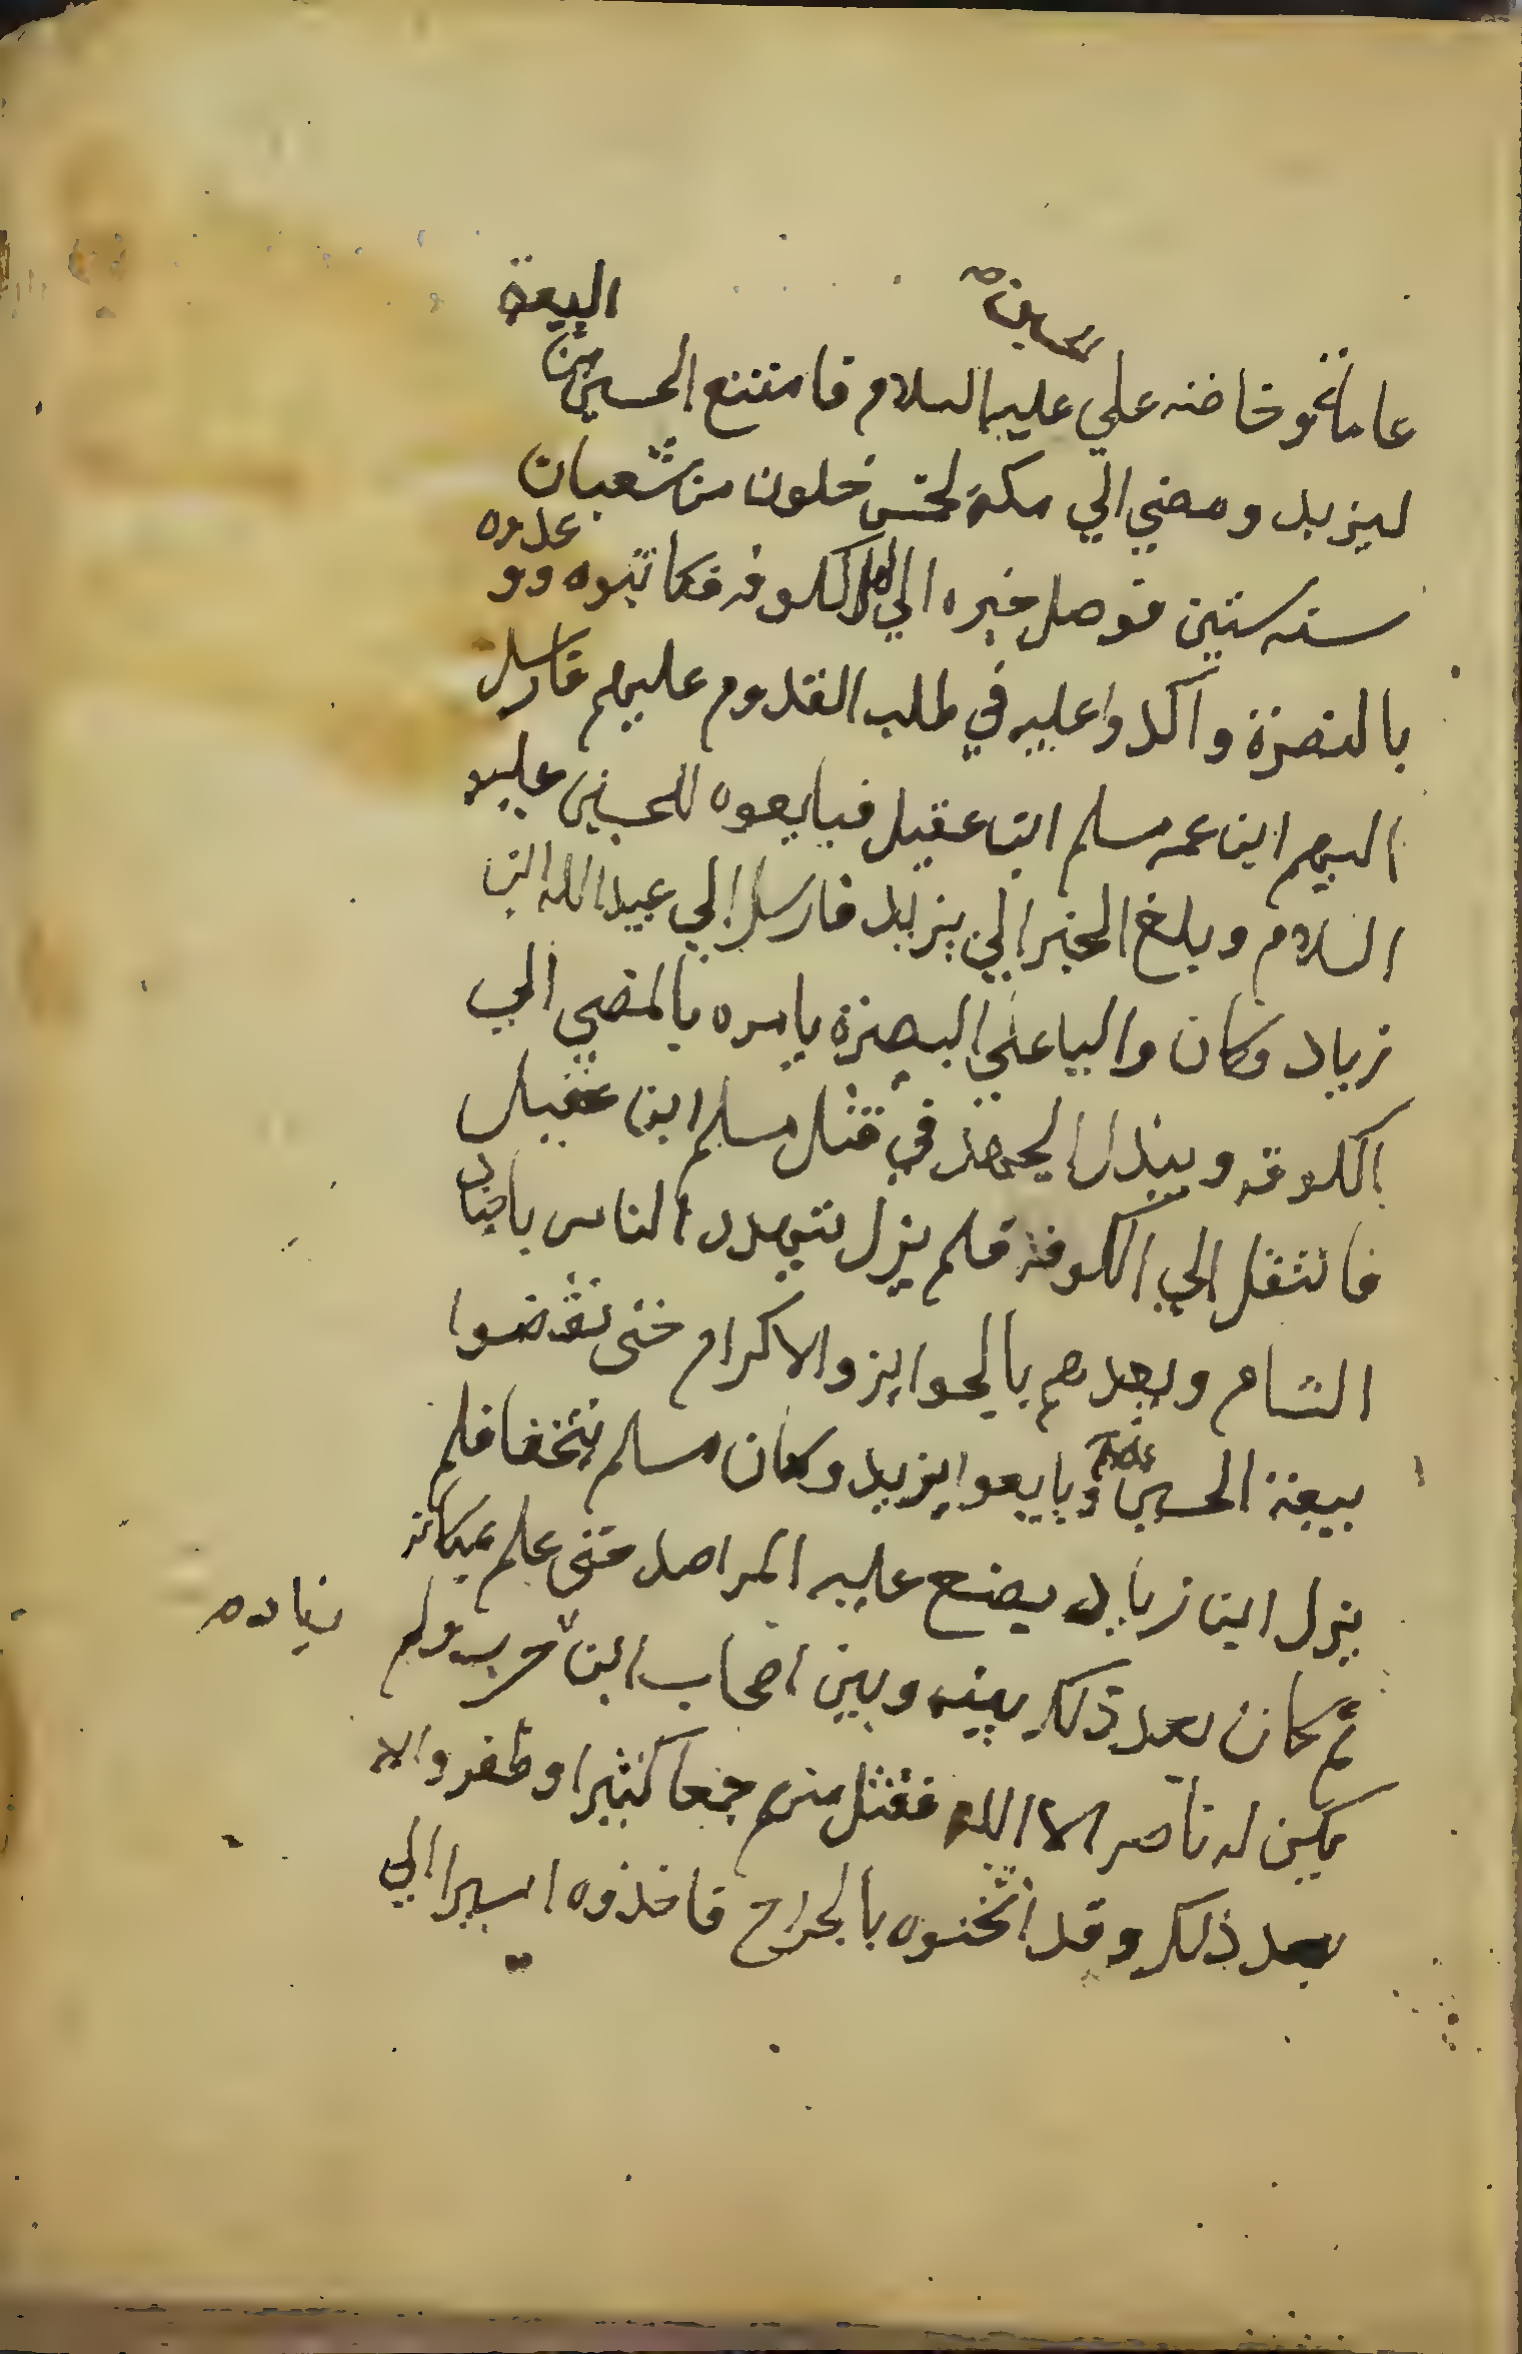 الحسين صح
البيعة
علي عليه السلام فامتنع الحسين من
ليزيد ومضي الي مكة لخمس خلون من شعبان
سنه ستين فوصل خبره الي اهل الكوفه فكاتبوه ووعدوه
بالنصرة واكدوا عليه في طلب القدوم عليهم فارسل
اليهم ابن عمه مسلم ابن عقيل فبايعوه للحسين عليه
السلام وبلغ الخبر الي يزيد فارسل الي عبيد الله ابن
زياد وكان واليا علي البصرة يامره بالمضي الي
الكوفه ويبذل الجهد في قتل مسلم ابن عقيل
فانتقل الي الكوفه فلم يزل يتهدد الناس باجناد
الشام ويعدهم بالجوايز والاكرام حتى نقضوا
بيعة الحسين وبايعوا يزيد وكان مسلم متخفا فلم
يزل ابن زياد يضع عليه المراصد حتى علم بمكانه
ثم كان بعد ذلك بينه وبين اصحاب ابن حرب ولم
يكن له ناصر الا الله فقتل منهم جمعا كثيرا وظفروا به
بعد ذلك وقد اثخنوه بالجراح فاخذوه اسيرا الي